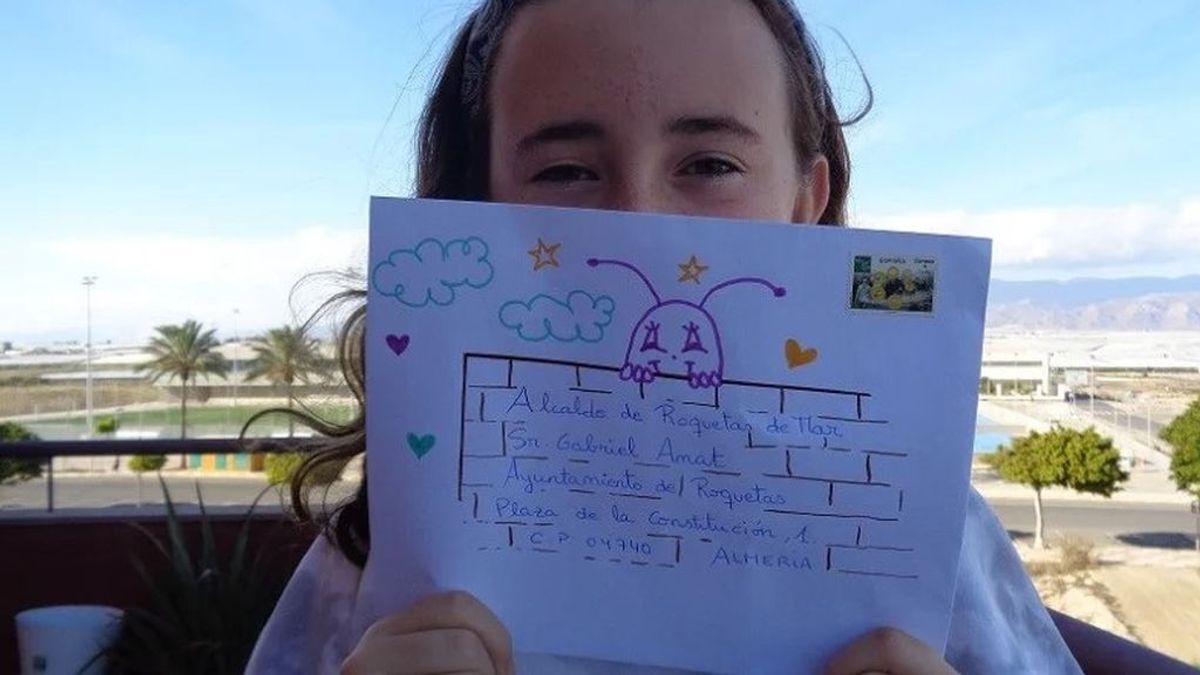 ESPAÑA Correos
Alcalde de Roquetas de Mar
Sr. Gabriel Amat
Ayuntamiento de Roquetas
Plaza de la Constitución, 1.
C.P 04740 ALMERÍA